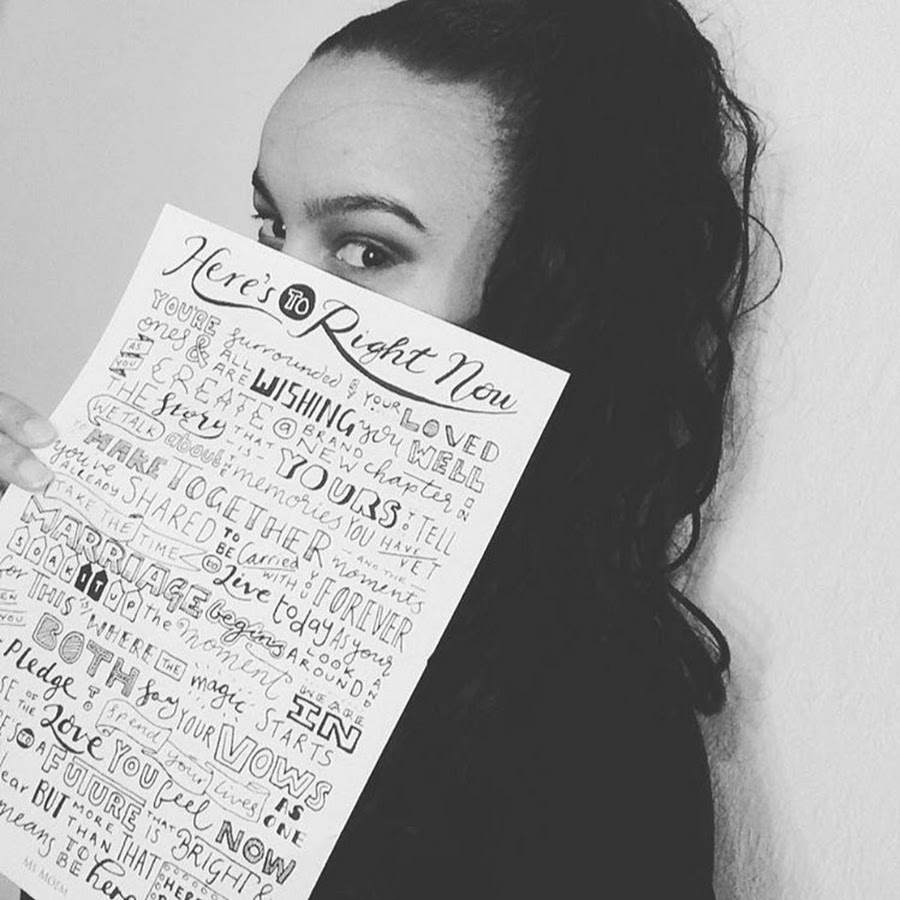 Here's TO Right Now
YOU'RE surrounded BY YOUR LOVED
ones & ALL ARE WISHING you WELL
AS YOU CREATE @ BRAND NEW chapter IN
THE Story THAT IS YOURS TO TELL
WE TALK about THE memories YOU HAVE YET
TO MAKE TOGETHER AND THE moments
you've ALREADY SHARED TO BE Carried WITH YOU FOREVER
TAKE THE TIME TO Live today AS your
MARRIAGE begins LOOK AROUND AND
SOAK IT UP the moment WE ARE IN
for THIS IS WHERE THE magic STARTS
YOU BOTH say YOUR VOWS
Pledge TO spend your lives AS ONE
OF THE Love YOU feel NOW
TO A FUTURE THAT IS BRIGHT &
BUT MORE THAN THAT
means TO BE here
HERE
MS MOEM